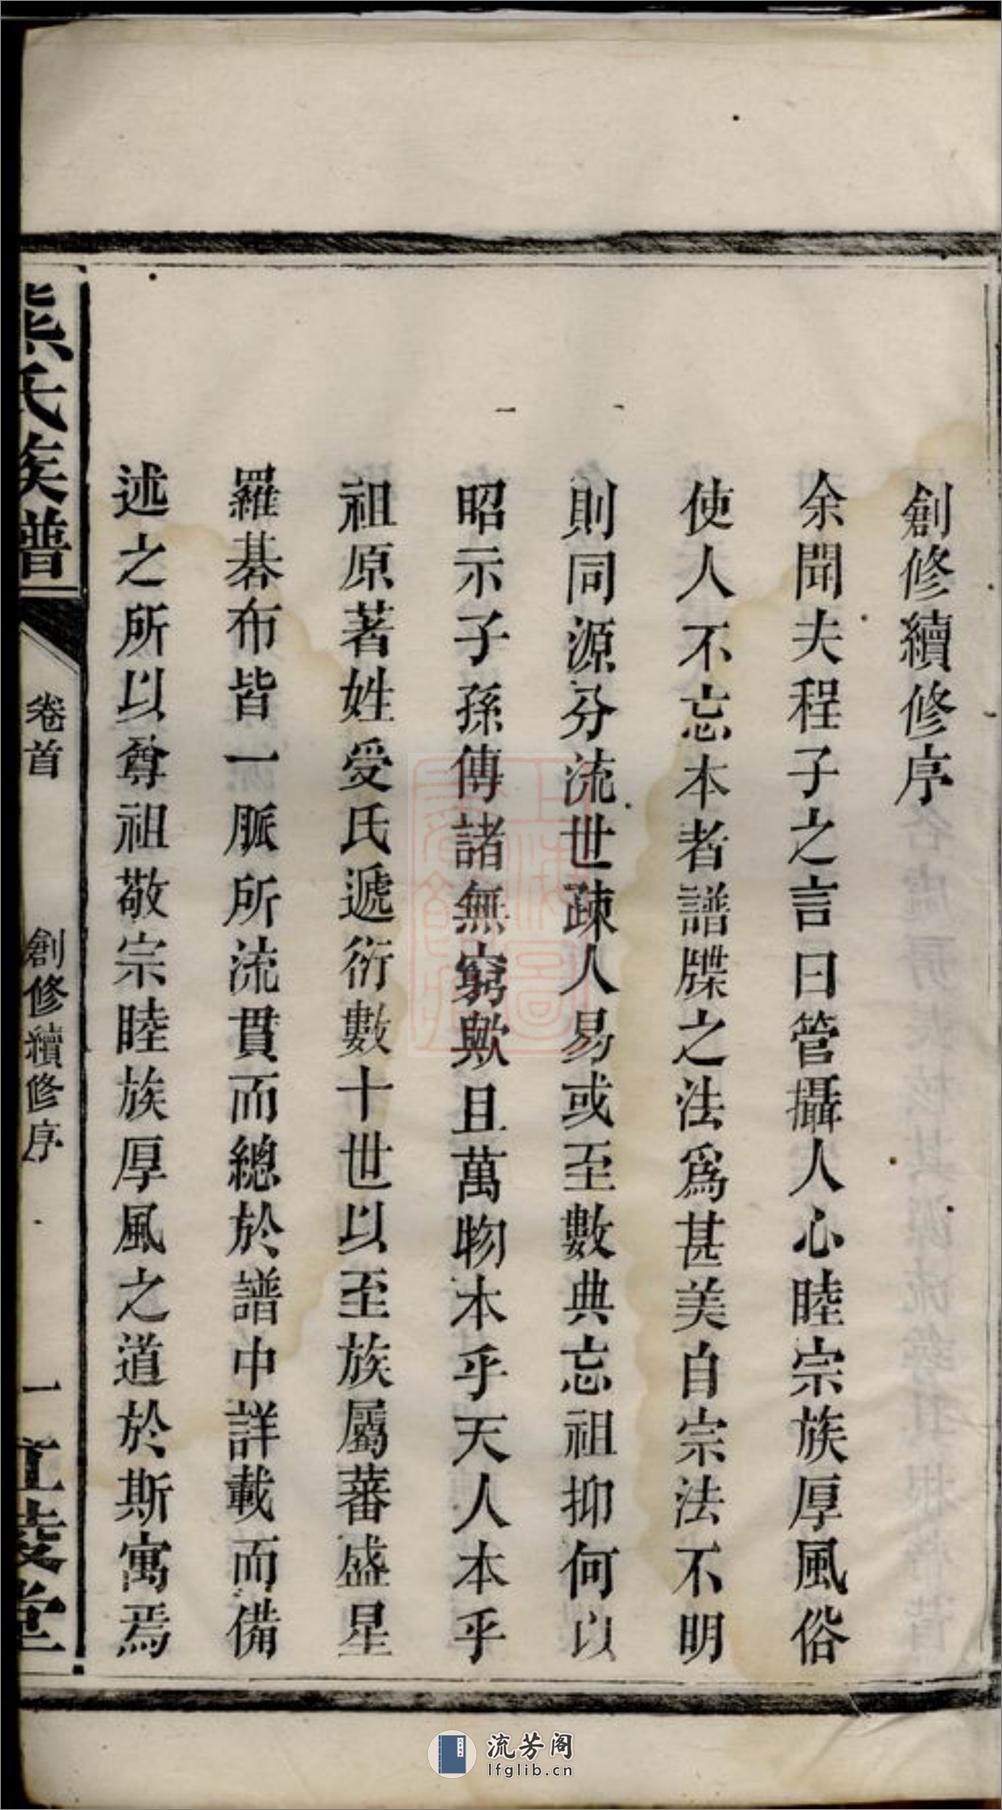 創修續修序
余聞夫程子之言曰管攝人心睦宗族厚風俗
使人不忘本者譜牒之法爲甚美自宗法不明
則同源分流世疎人易或至數典忘祖抑何以
昭示子孫傳諸無窮歟且萬物本乎天人本乎
祖原著姓受氏遞衍數十世以至族屬蕃盛星
羅碁布皆一脈所流貫而總於譜中詳載而備
述之所以尊祖敬宗睦族厚風之道於斯寓焉
熊氏族譜
卷首
創修續修序
一
江陵堂
流芳阁
lfglib.cn